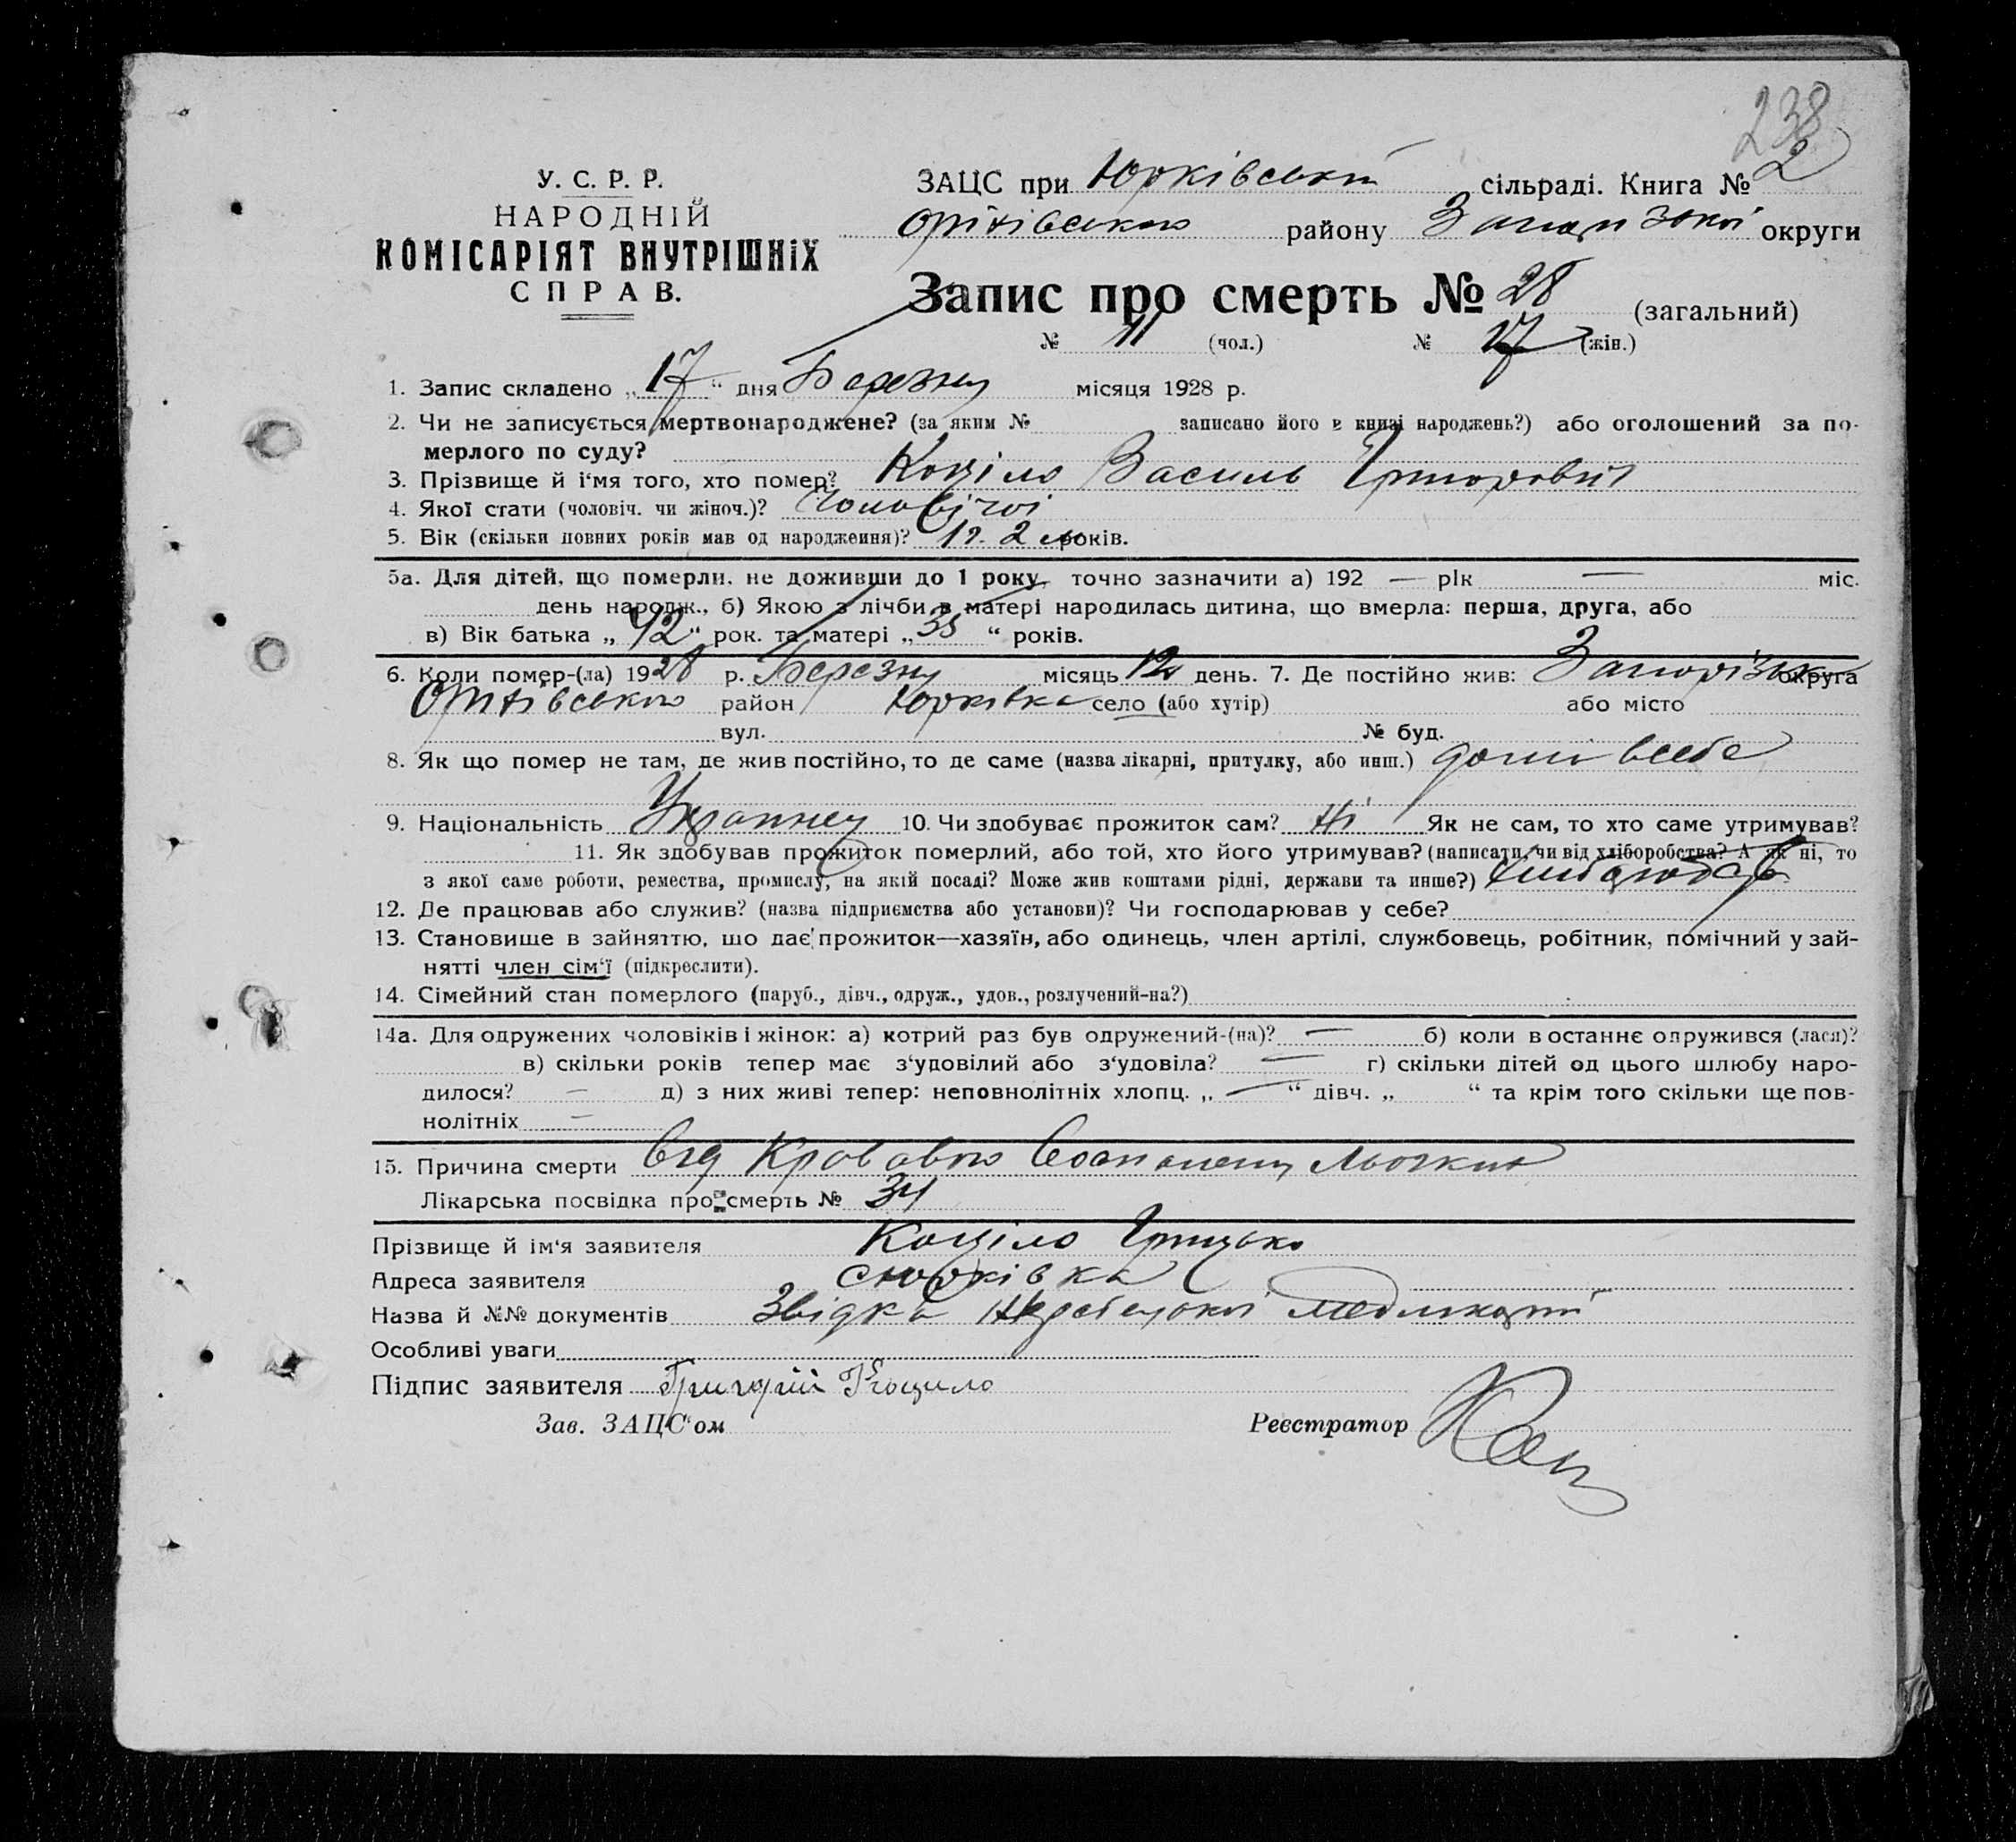 238
У. С. Р. Р.
НАРОДНІЙ
КОМІСАРІЯТ ВНУТРІШНІХ
СПРАВ.
ЗАЦС при Юрківській сільраді. Книга № 2
Оріхівського району Запорізької округи
Запис про смерть № 28 (загальний)
№ 11 (чол.) № 17 (жін.)
1. Запис складено „ 17 “ дня Березня місяця 1928 р.
2. Чи не записується мертвонароджене? (за яким № записано його в книзі народжень?) або оголошений за по-
мерлого по суду?
3. Прізвище й і'мя того, хто помер? Коціло Василь Григорович
4. Якої стати (чоловіч. чи жіноч.)? чоловічої
5. Вік (скільки повних років мав од народження)? 1 р. 2 м років.
5а. Для дітей, що померли, не доживши до 1 року, точно зазначити а) 192 — рік — міс.
день народж., б) Якою з лічби в матері народилась дитина, що вмерла: перша, друга, або
в) Вік батька „ 42 “ рок. та матері „ 38 “ років.
6. Коли помер-(ла) 1928 р. Березня місяць 12 день. 7. Де постійно жив: Запорізька округа
Оріхівського район Юрківка село (або хутір) або місто
вул. № буд.
8. Як що помер не там, де жив постійно, то де саме (назва лікарні, притулку, або инш.) дома в себе
9. Національність Українец 10. Чи здобуває прожиток сам? Ні Як не сам, то хто саме утримував?
11. Як здобував прожиток померлий, або той, хто його утримував? (написати, чи від хліборобства? А як ні, то
з якої саме роботи, ремества, промислу, на якій посаді? Може жив коштами рідні, держави та инше?)
12. Де працював або служив? (назва підприємства або установи)? Чи господарював у себе?
13. Становище в зайняттю, що дає прожиток—хазяїн, або одинець, член артілі, службовець, робітник, помічний у зай-
нятті член сім'ї (підкреслити).
14. Сімейний стан померлого (паруб., дівч., одруж., удов., розлучений-на?)
14а. Для одружених чоловіків і жінок: а) котрий раз був одружений-(на)? — б) коли в останнє одружився (лася)?
в) скільки років тепер має з'удовілий або з'удовіла? — г) скільки дітей од цього шлюбу наро-
дилося? — д) з них живі тепер: неповнолітніх хлопц. „ — “ дівч. „ “ та крім того скільки ще пов-
нолітніх —
15. Причина смерти Від Кровавого Воспаления
Лікарська посвідка про смерть № 34
Прізвище й ім'я заявителя Коціло Грицько
Адреса заявителя с Юрківка
Назва й №№ документів Звідка
Особливі уваги
Підпис заявителя Григорій Коцило
Зав. ЗАЦС'ом Реєстратор